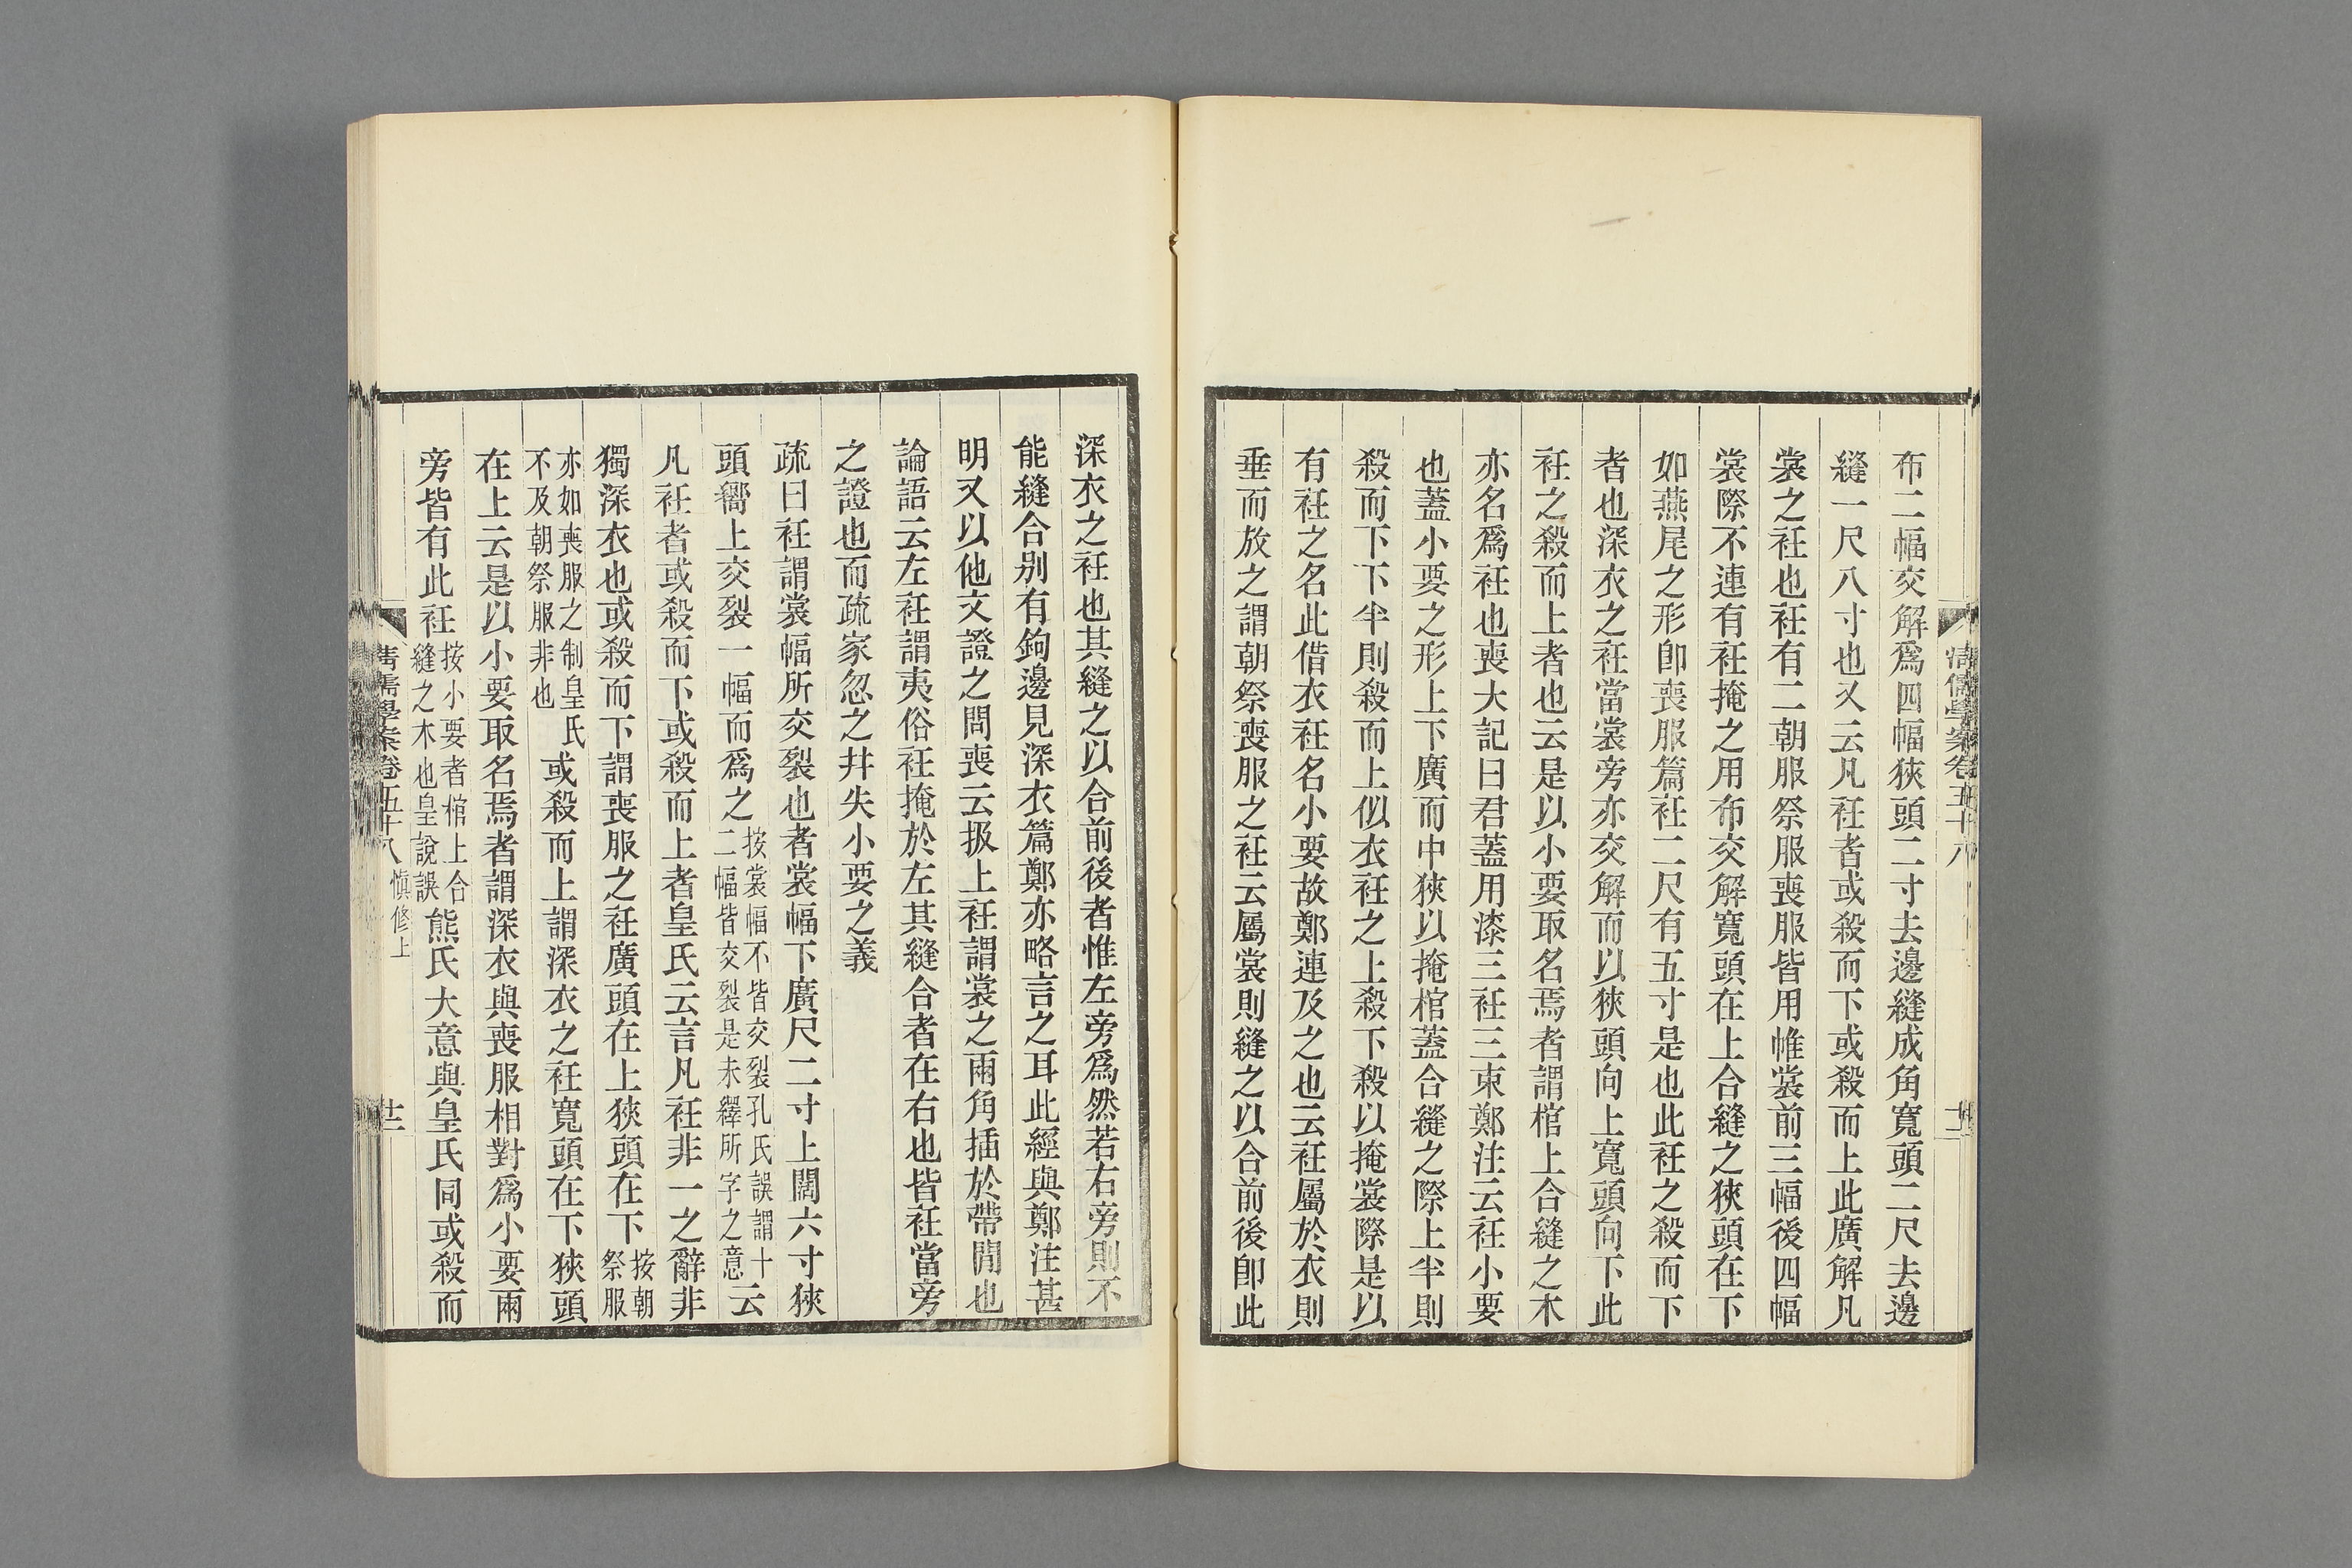 布二幅交解爲四幅狹頭二寸去邊縫成角寬頭二尺去邊
縫一尺八寸也又云凡衽者或殺而下或殺而上此廣解凡
裳之衽也衽有二朝服祭服喪服皆用帷裳前三幅後四幅
裳際不連有衽掩之用布交解寬頭在上合縫之狹頭在下
如燕尾之形卽喪服篇衽二尺有五寸是也此衽之殺而下
者也深衣之衽當裳旁亦交解而以狹頭向上寬頭向下此
衽之殺而上者也云是以小要取名焉者謂棺上合縫之木
亦名爲衽也喪大記曰君蓋用漆三衽三束鄭注云衽小要
也蓋小要之形上下廣而中狹以掩棺蓋合縫之際上半則
殺而下下半則殺而上似衣衽之上殺下殺以掩裳際是以
有衽之名此借衣衽名小要故鄭連及之也云衽屬於衣則
垂而放之謂朝祭喪服之衽云屬裳則縫之以合前後卽此
深衣之衽也其縫之以合前後者惟左旁爲然若右旁則不
能縫合别有鉤邊見深衣篇鄭亦略言之耳此經與鄭注甚
明又以他文證之問喪云扱上衽謂裳之兩角插於帶閒也
論語云左衽謂夷俗衽掩於左其縫合者在右也皆衽當旁
之證也而疏家忽之幷失小要之義
疏曰衽謂裳幅所交裂也者裳幅下廣尺二寸上闊六寸狹
頭嚮上交裂一幅而爲之按裳幅不皆交裂孔氏誤謂十二幅皆交裂是未繹所字之意云
凡衽者或殺而下或殺而上者皇氏云言凡衽非一之辭非
獨深衣也或殺而下謂喪服之衽廣頭在上狹頭在下按朝祭服
亦如喪服之制皇氏不及朝祭服非也或殺而上謂深衣之衽寬頭在下狹頭
在上云是以小要取名焉者謂深衣與喪服相對爲小要兩
旁皆有此衽按小要者棺上合縫之木也皇說誤熊氏大意與皇氏同或殺而
清儒學案卷五十八 愼修上